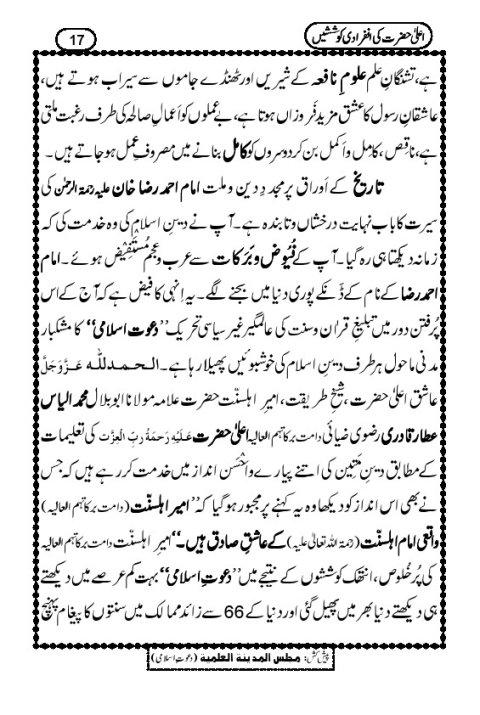 اعلیٰ حضرت کی انفرادی کوششیں
17
ہے، تشنگانِ علم علومِ نافعہ کے شیریں اور ٹھنڈے جاموں سے سیراب ہوتے ہیں،
عاشقانِ رسول کا عشق مزید فَروزاں ہوتا ہے، بے عملوں کو اَعمالِ صالحہ کی طرف رغبت ملتی
ہے، ناقِص، کامل و اَکمل بن کر دوسروں کو کامل بنانے میں مصروفِ عمل ہو جاتے ہیں۔
تاریخ کے اَوراق پر مجددِ دین و ملت امام احمد رضا خان علیہ رحمۃ الرحمٰن کی
سیرت کا باب نہایت درخشاں و تابندہ ہے۔ آپ نے دینِ اسلام کی وہ خدمت کی کہ
زمانہ دیکھتا ہی رہ گیا۔ آپ کے فُیُوض و بَرَکات سے عرب و عجم مُستَفِیض ہوئے۔ امام
احمد رضا کے نام کے ڈنکے پوری دنیا میں بجنے لگے۔ یہ اِنہی کا فیض ہے کہ آج کے اس
پُرفتن دور میں تبلیغِ قراٰن و سنت کی عالمگیر غیر سیاسی تحریک ’’دعوتِ اسلامی‘‘ کا مشکبار
مدنی ماحول ہر طرف دینِ اسلام کی خوشبوئیں پھیلا رہا ہے۔ الحمدللّٰہ عَزَّوَجَلَّ
عاشقِ اعلیٰ حضرت، شیخِ طریقت، امیرِ اہلسنّت حضرت علامہ مولانا ابو بلال محمد الیاس
عطار قادری رضوی ضیائی دامت برکاتہم العالیہ اعلیٰ حضرت عَلَیْہِ رَحمَۃُ ربِّ العِزَّت کی تعلیمات
کے مطابق دینِ مَتِین کی اتنے پیارے و اَحْسَن انداز میں خدمت کر رہے ہیں کہ جس
نے بھی اس انداز کو دیکھا وہ یہ کہنے پر مجبور ہو گیا کہ ’’امیرِ اہلسنّت (دامت برکاتہم العالیہ)
واقعی امامِ اہلسنّت (رحمۃ اللہ تعالیٰ علیہ) کے عاشقِ صادق ہیں۔‘‘ امیرِ اہلسنّت دامت برکاتہم العالیہ
کی پُر خُلوص، انتھک کوششوں کے نتیجے میں ’’دعوتِ اسلامی‘‘ بہت کم عرصے میں دیکھتے
ہی دیکھتے دنیا بھر میں پھیل گئی اور دنیا کے 66 سے زائد ممالک میں سنتوں کا پیغام پہنچ
پیش کش: مجلس المدینۃ العلمیۃ (دعوتِ اسلامی)